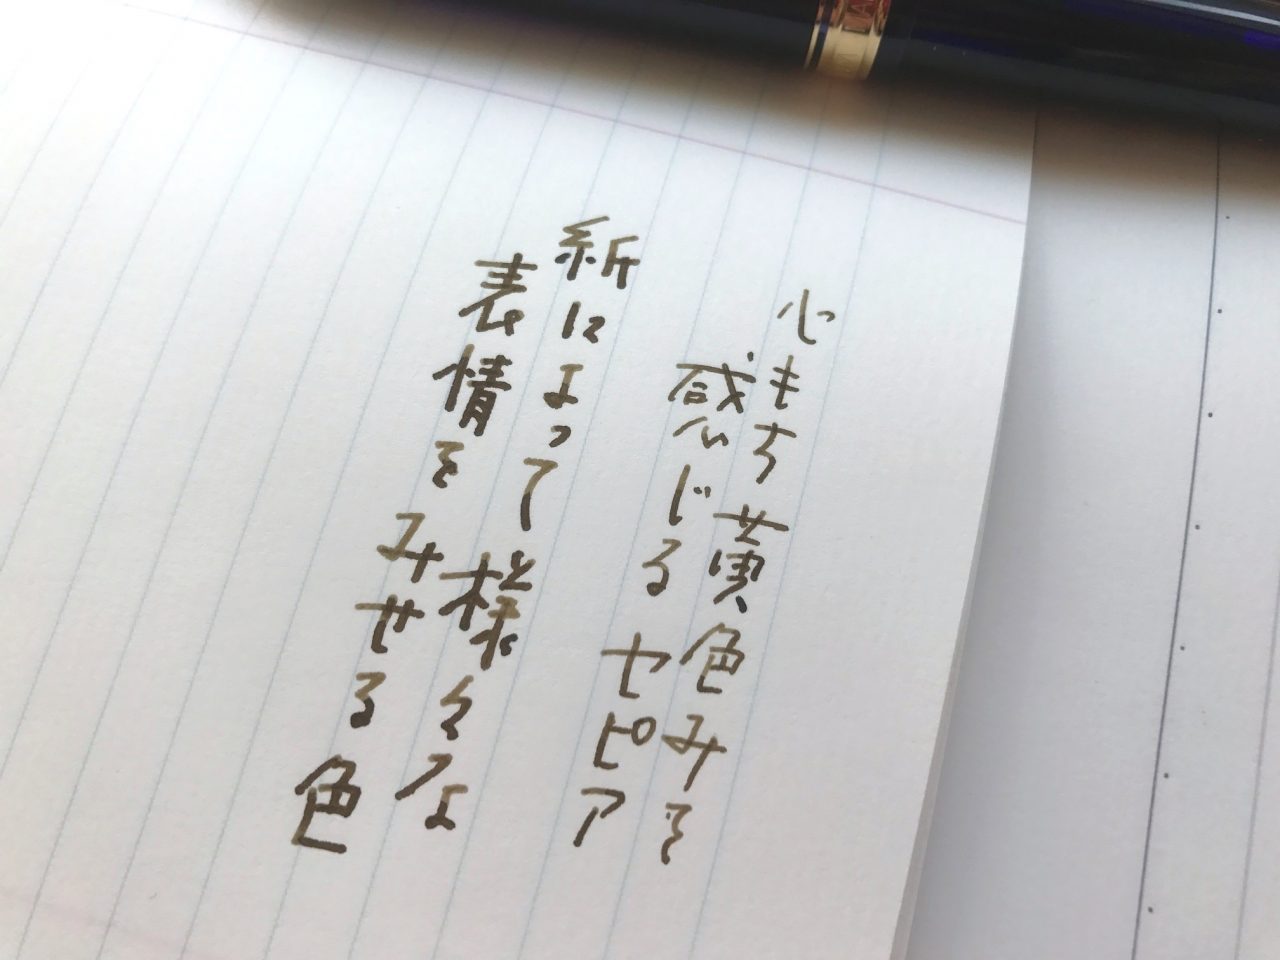 心もち黄色みを
感じるセピア
紙によって様々な
表情をみせる色